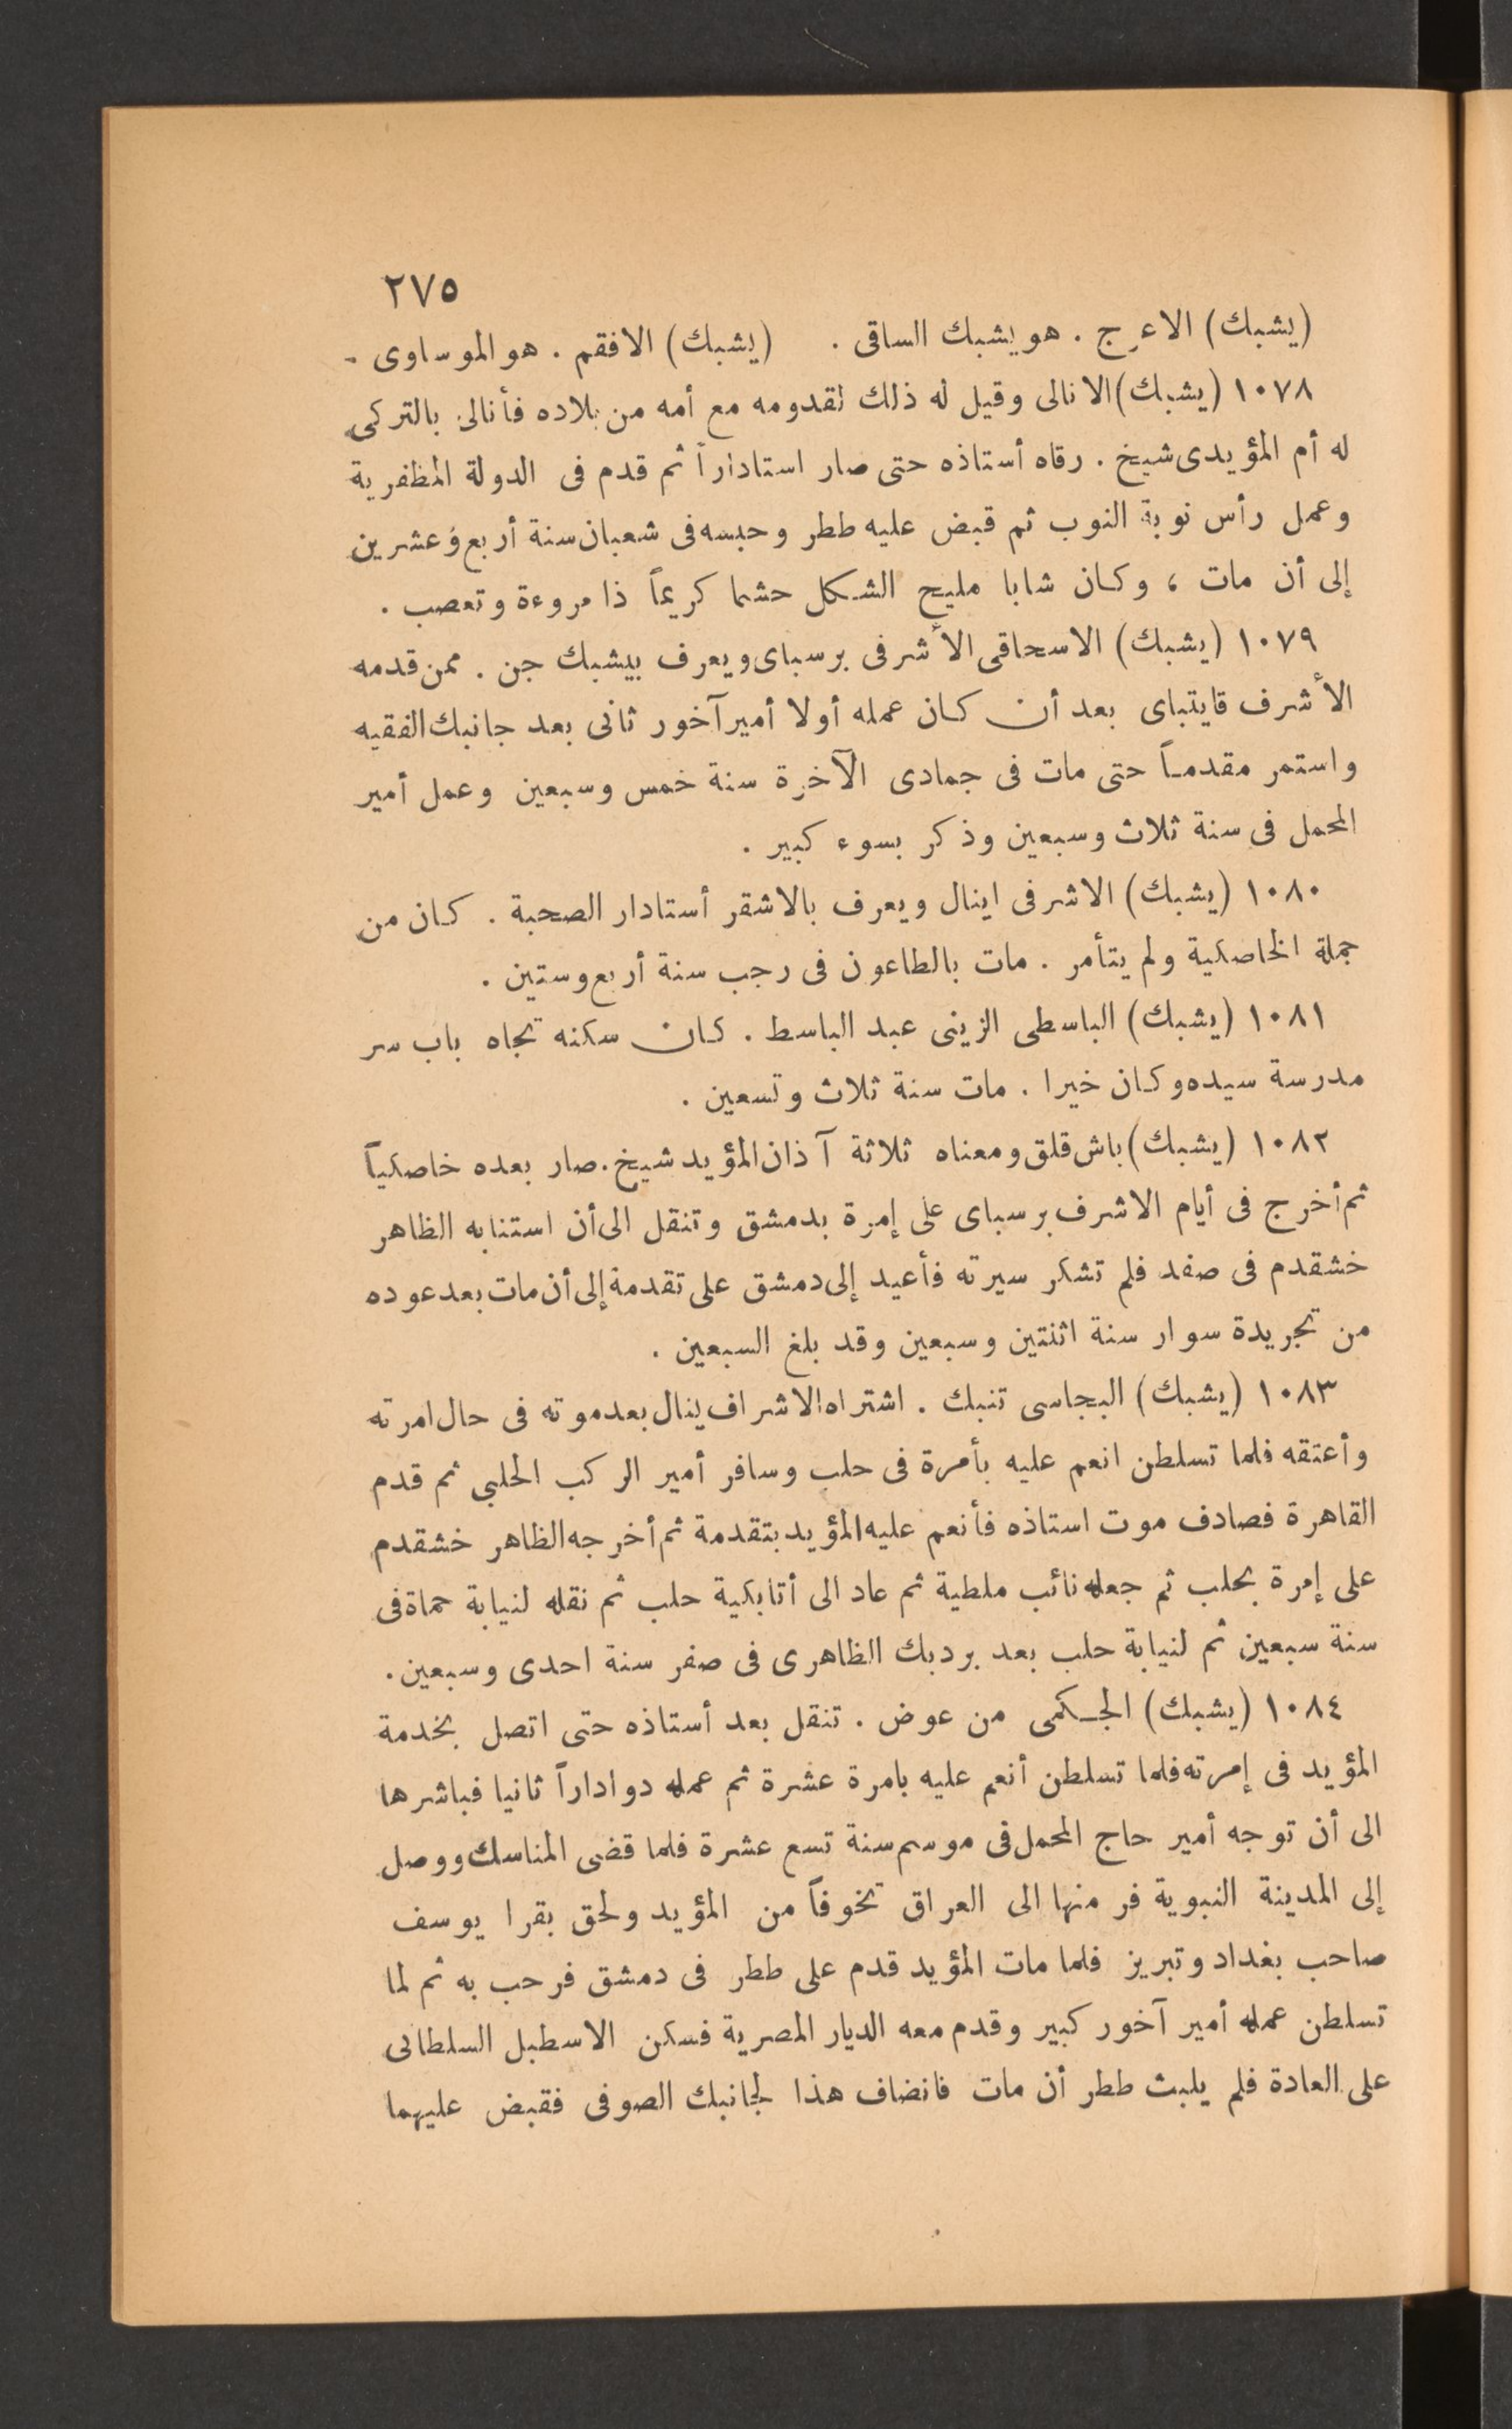 ٢٧٥
(يشبك) الاعرج . هو يشبك الساقى . (يشبك) الافقم . هو الموساوى .
١٠٧٨ (يشبك) الانالى وقيل له ذلك لقدومه مع أمه من بلاده فأنالى بالتركى
له أم المؤيدى شيخ . رقاه أستاذه حتى صار استاداراً ثم قدم فى الدولة المظفرية
وعمل رأس نوبة النوب ثم قبض عليه ططر وحبسه فى شعبان سنة أربع وعشرين
إلى أن مات ، وكان شابا مليح الشكل حشما كريماً ذا مروءة وتعصب .
١٠٧٩ (يشبك) الاسحاقى الأشرفى برسباى ويعرف بيشبك جن . ممن قدمه
الأشرف قايتباى بعد أن كان عمله أولا أمير آخور ثانى بعد جانبك الفقيه
واستمر مقدماً حتى مات فى جمادى الآخرة سنة خمس وسبعين وعمل أمير
المحمل فى سنة ثلاث وسبعين وذكر بسوء كبير .
١٠٨٠ (يشبك) الاشرفى اينال ويعرف بالاشقر أستادار الصحبة . كان من
جملة الخاصكية ولم يتأمر . مات بالطاعون فى رجب سنة أربع وستين .
١٠٨١ (يشبك) الباسطى الزينى عبد الباسط . كان سكنه تجاه باب سر
مدرسة سيده وكان خيرا . مات سنة ثلاث وتسعين .
١٠٨٢ (يشبك) باش قلق ومعناه ثلاثة آذان المؤيد شيخ . صار بعده خاصكياً
ثم أخرج فى أيام الاشرف برسباى على إمرة بدمشق وتنقل الى أن استنابه الظاهر
خشقدم فى صفد فلم تشكر سيرته فأعيد إلى دمشق على تقدمة إلى أن مات بعد عوده
من تجريدة سوار سنة اثنتين وسبعين وقد بلغ السبعين .
١٠٨٣ (يشبك) البجاسى تنبك . اشتراه الاشراف ينال بعد موته فى حال امرته
وأعتقه فلما تسلطن انعم عليه بأمرة فى حلب وسافر أمير الركب الحلبى ثم قدم
القاهرة فصادف موت استاذه فأنعم عليه المؤيد بتقدمة ثم أخرجه الظاهر خشقدم
على إمرة بحلب ثم جعله نائب ملطية ثم عاد الى أتابكية حلب ثم نقله لنيابة حماة فى
سنة سبعين ثم لنيابة حلب بعد بردبك الظاهرى فى صفر سنة احدى وسبعين .
١٠٨٤ (يشبك) الجكمى من عوض . تنقل بعد أستاذه حتى اتصل بخدمة
المؤيد فى إمرته فلما تسلطن أنعم عليه بامرة عشرة ثم عمله دواداراً ثانيا فباشرها
الى أن توجه أمير حاج المحمل فى موسم سنة تسع عشرة فلما قضى المناسك ووصل
إلى المدينة النبوية فر منها الى العراق تخوفاً من المؤيد ولحق بقرا يوسف
صاحب بغداد وتبريز فلما مات المؤيد قدم على ططر فى دمشق فرحب به ثم لما
تسلطن عمله أمير آخور كبير وقدم معه الديار المصرية فسكن الاسطبل السلطانى
على العادة فلم يلبث ططر أن مات فانضاف هذا لجانبك الصوفى فقبض عليهما